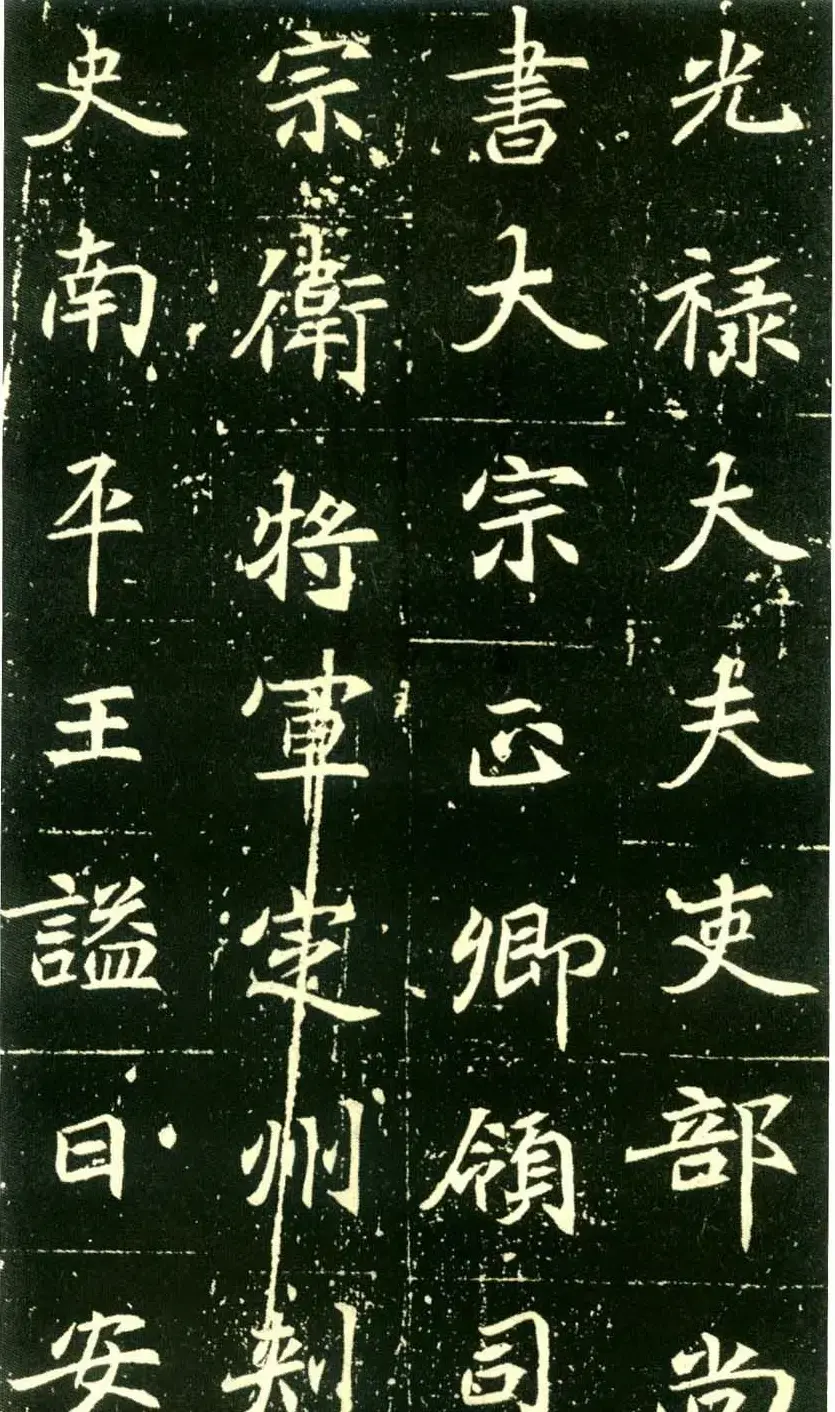 光禄大夫吏部尚
書大宗正卿領司
宗衛將軍定州刺
史南平王謚曰安